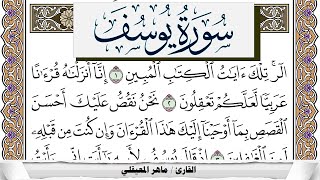 سُورَةُ يُوسُف
الٓرۚ تِلۡكَ ءَايَٰتُ ٱلۡكِتَٰبِ ٱلۡمُبِينِ ١ إِنَّآ أَنزَلۡنَٰهُ قُرۡءَٰنًا
عَرَبِيّٗا لَّعَلَّكُمۡ تَعۡقِلُونَ ٢ نَحۡنُ نَقُصُّ عَلَيۡكَ أَحۡسَنَ
ٱلۡقَصَصِ بِمَآ أَوۡحَيۡنَآ إِلَيۡكَ هَٰذَا ٱلۡقُرۡءَانَ وَإِن كُنتَ مِن قَبۡلِهِۦ
إِذۡ قَالَ يُوسُفُ
القارئ / ماهر المعيقلي